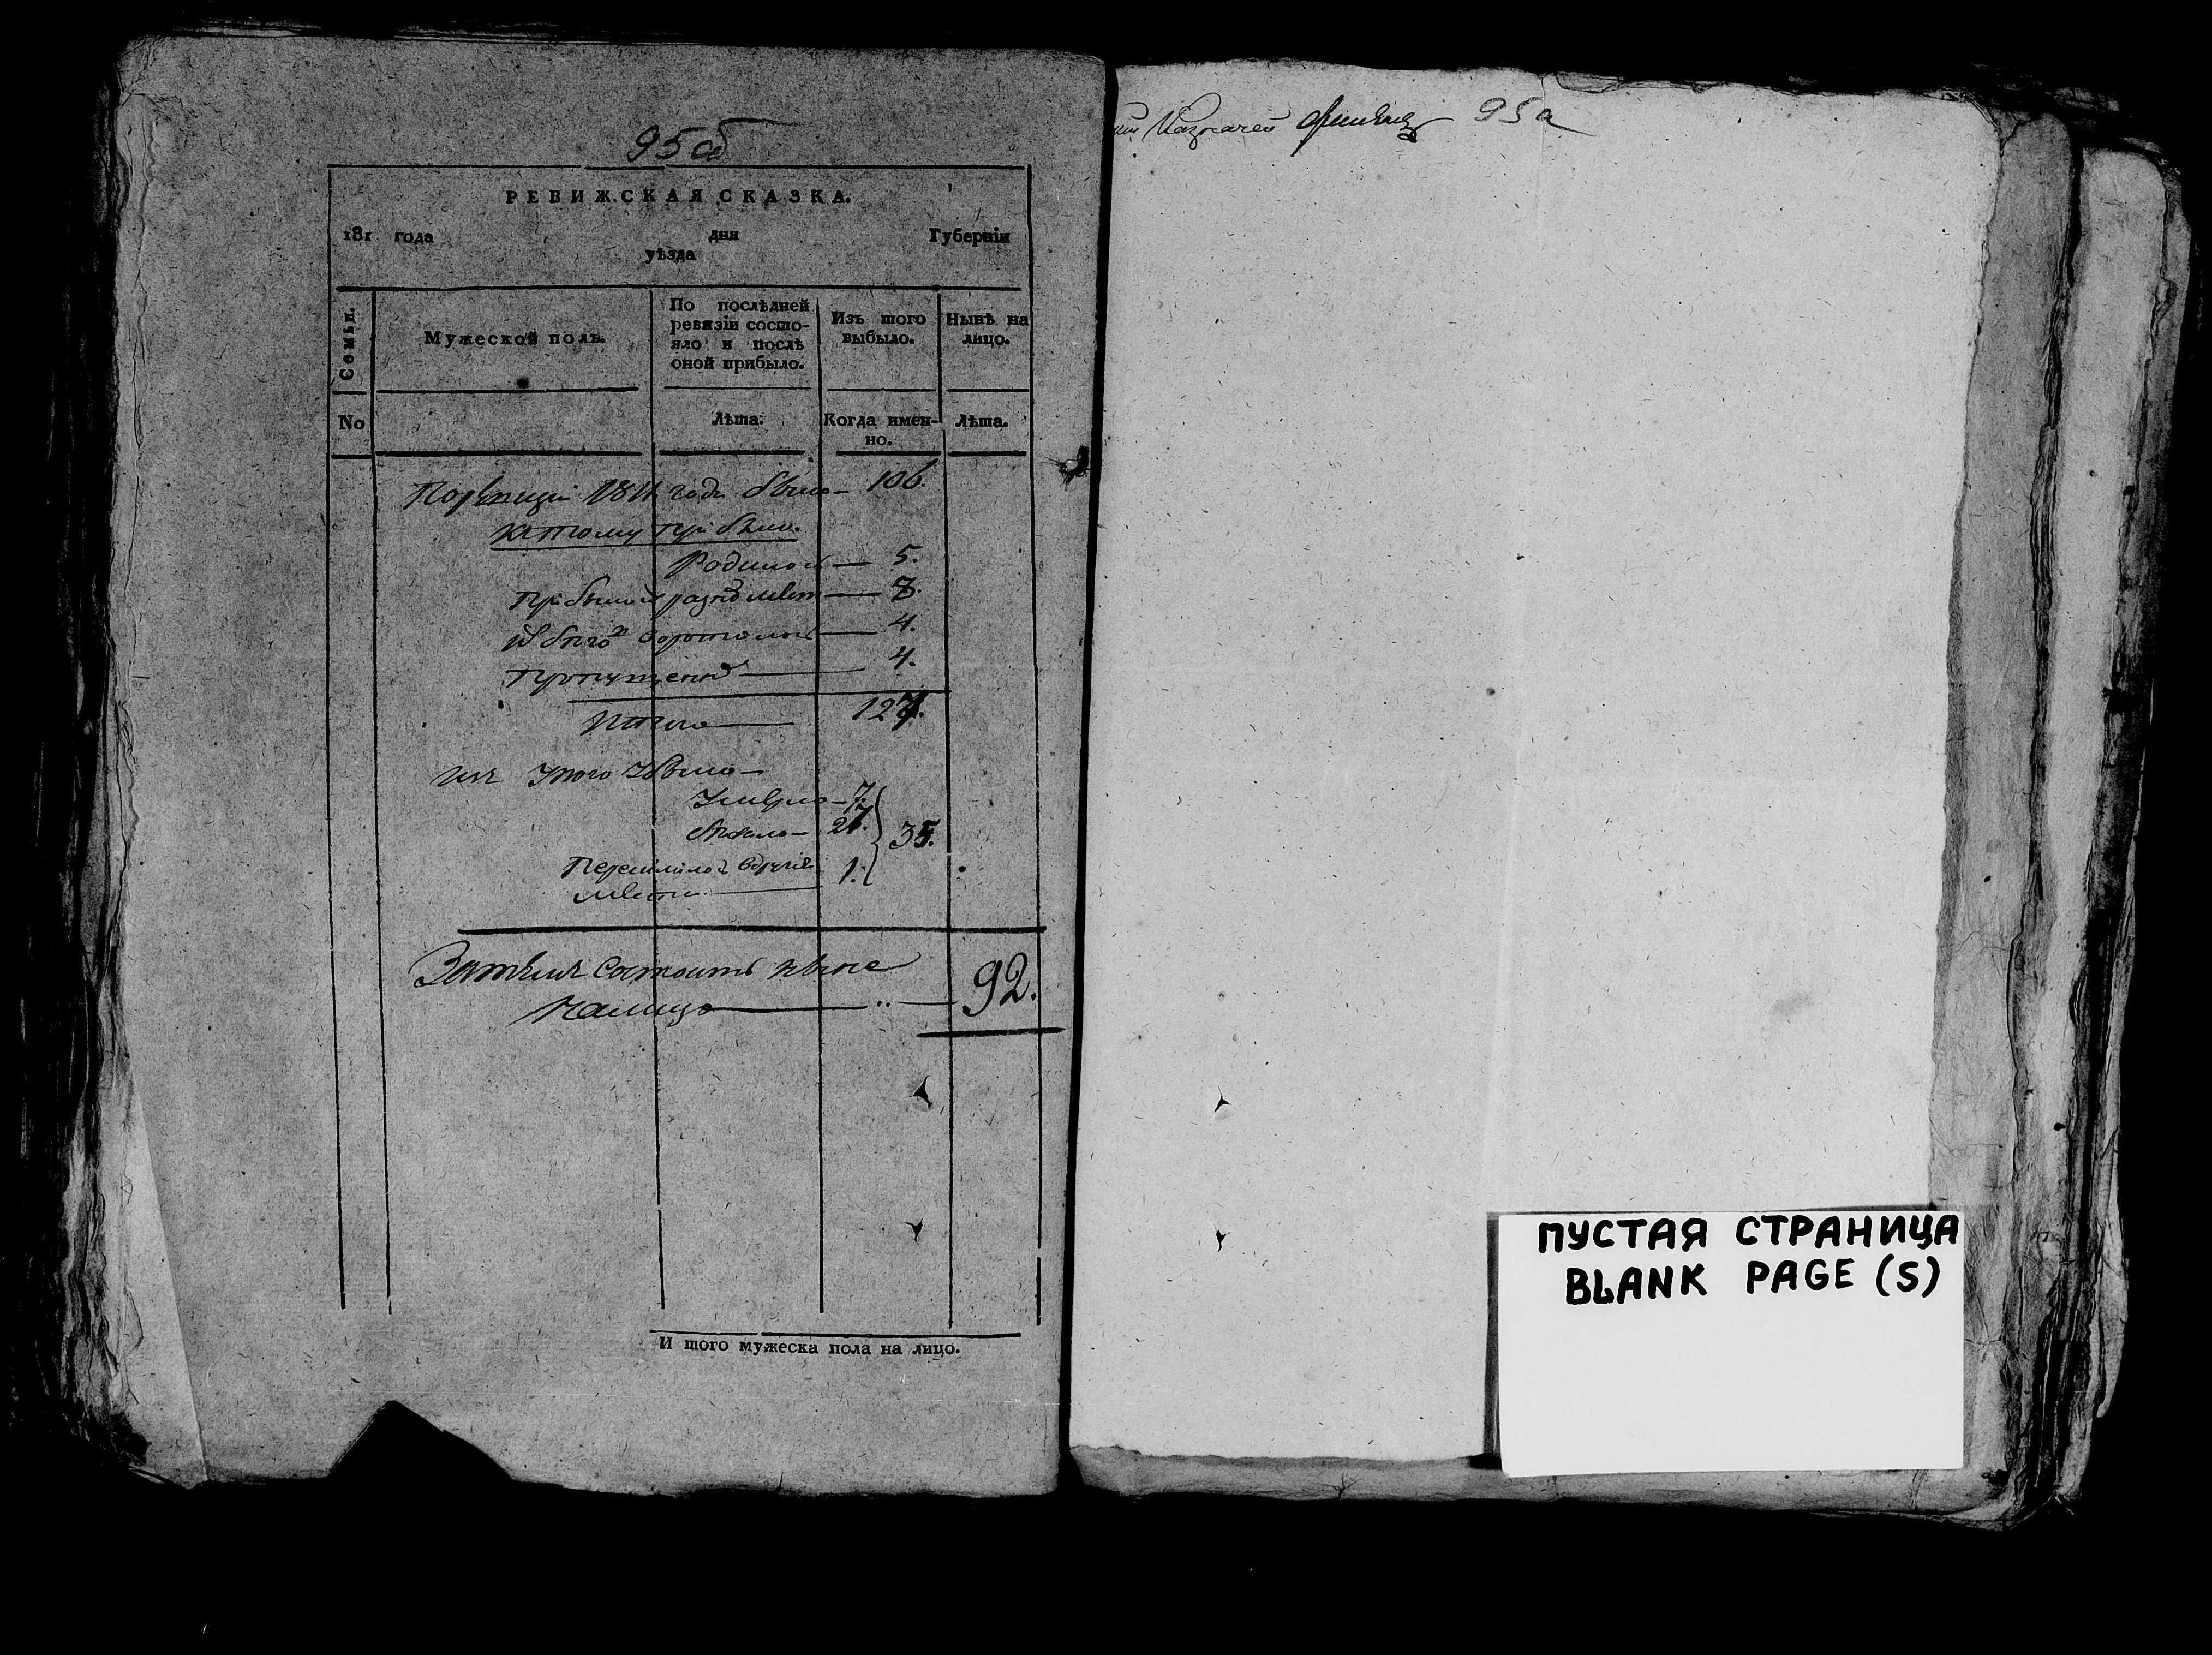 95об
РЕВИЖСКАЯ СКАЗКА.
181 года дня Губерніи
уѣзда
Семьи. Мужеской полъ. По послѣдней ревизіи состояло и послѣ оной прибыло. Изъ того выбыло. Нынѣ на лицо.
No Лѣта: Когда именно. Лѣта.
По ревизіи 1811 года было— 106.
К тому прибыло.
Родилось — 5.
Прибыло разн мест — 8.
Из бегов воротилось — 4.
Пропущено — 4.
Итого — 127.
Из этого убыло —
Умерло — 7.
бежало — 27. } 35.
Переселилось в другие
места — 1.
Затем состоитъ ныне
налицо — 92.
И того мужеска пола на лицо.
Казначей 95а
ПУСТАЯ СТРАНИЦА
BLANK PAGE (S)